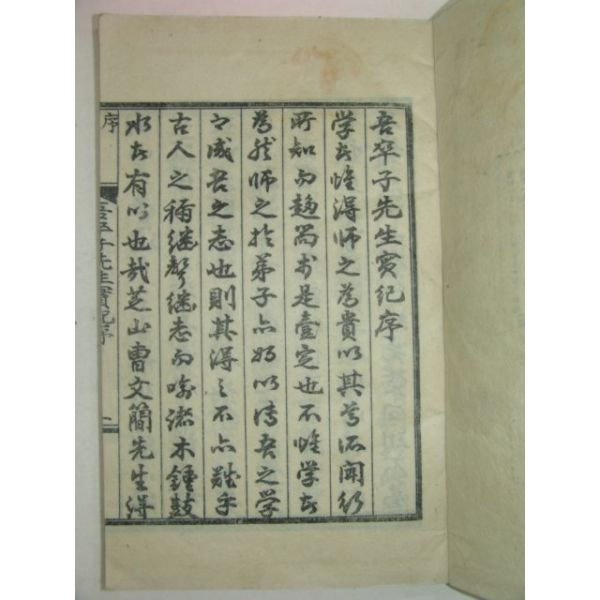 吾卒子先生實紀序
学者惟得師之為貴以其尊所聞行
所知而趨尚於是壹定也不惟学者
為然師之於弟子亦如以傳吾之学
以成吾之志也則其得之不亦難乎
古人之稱繼聲繼志而喩諸木鍾鼓
水者有以也哉芝山曺文簡先生得
序
吾卒子先生實紀序
一